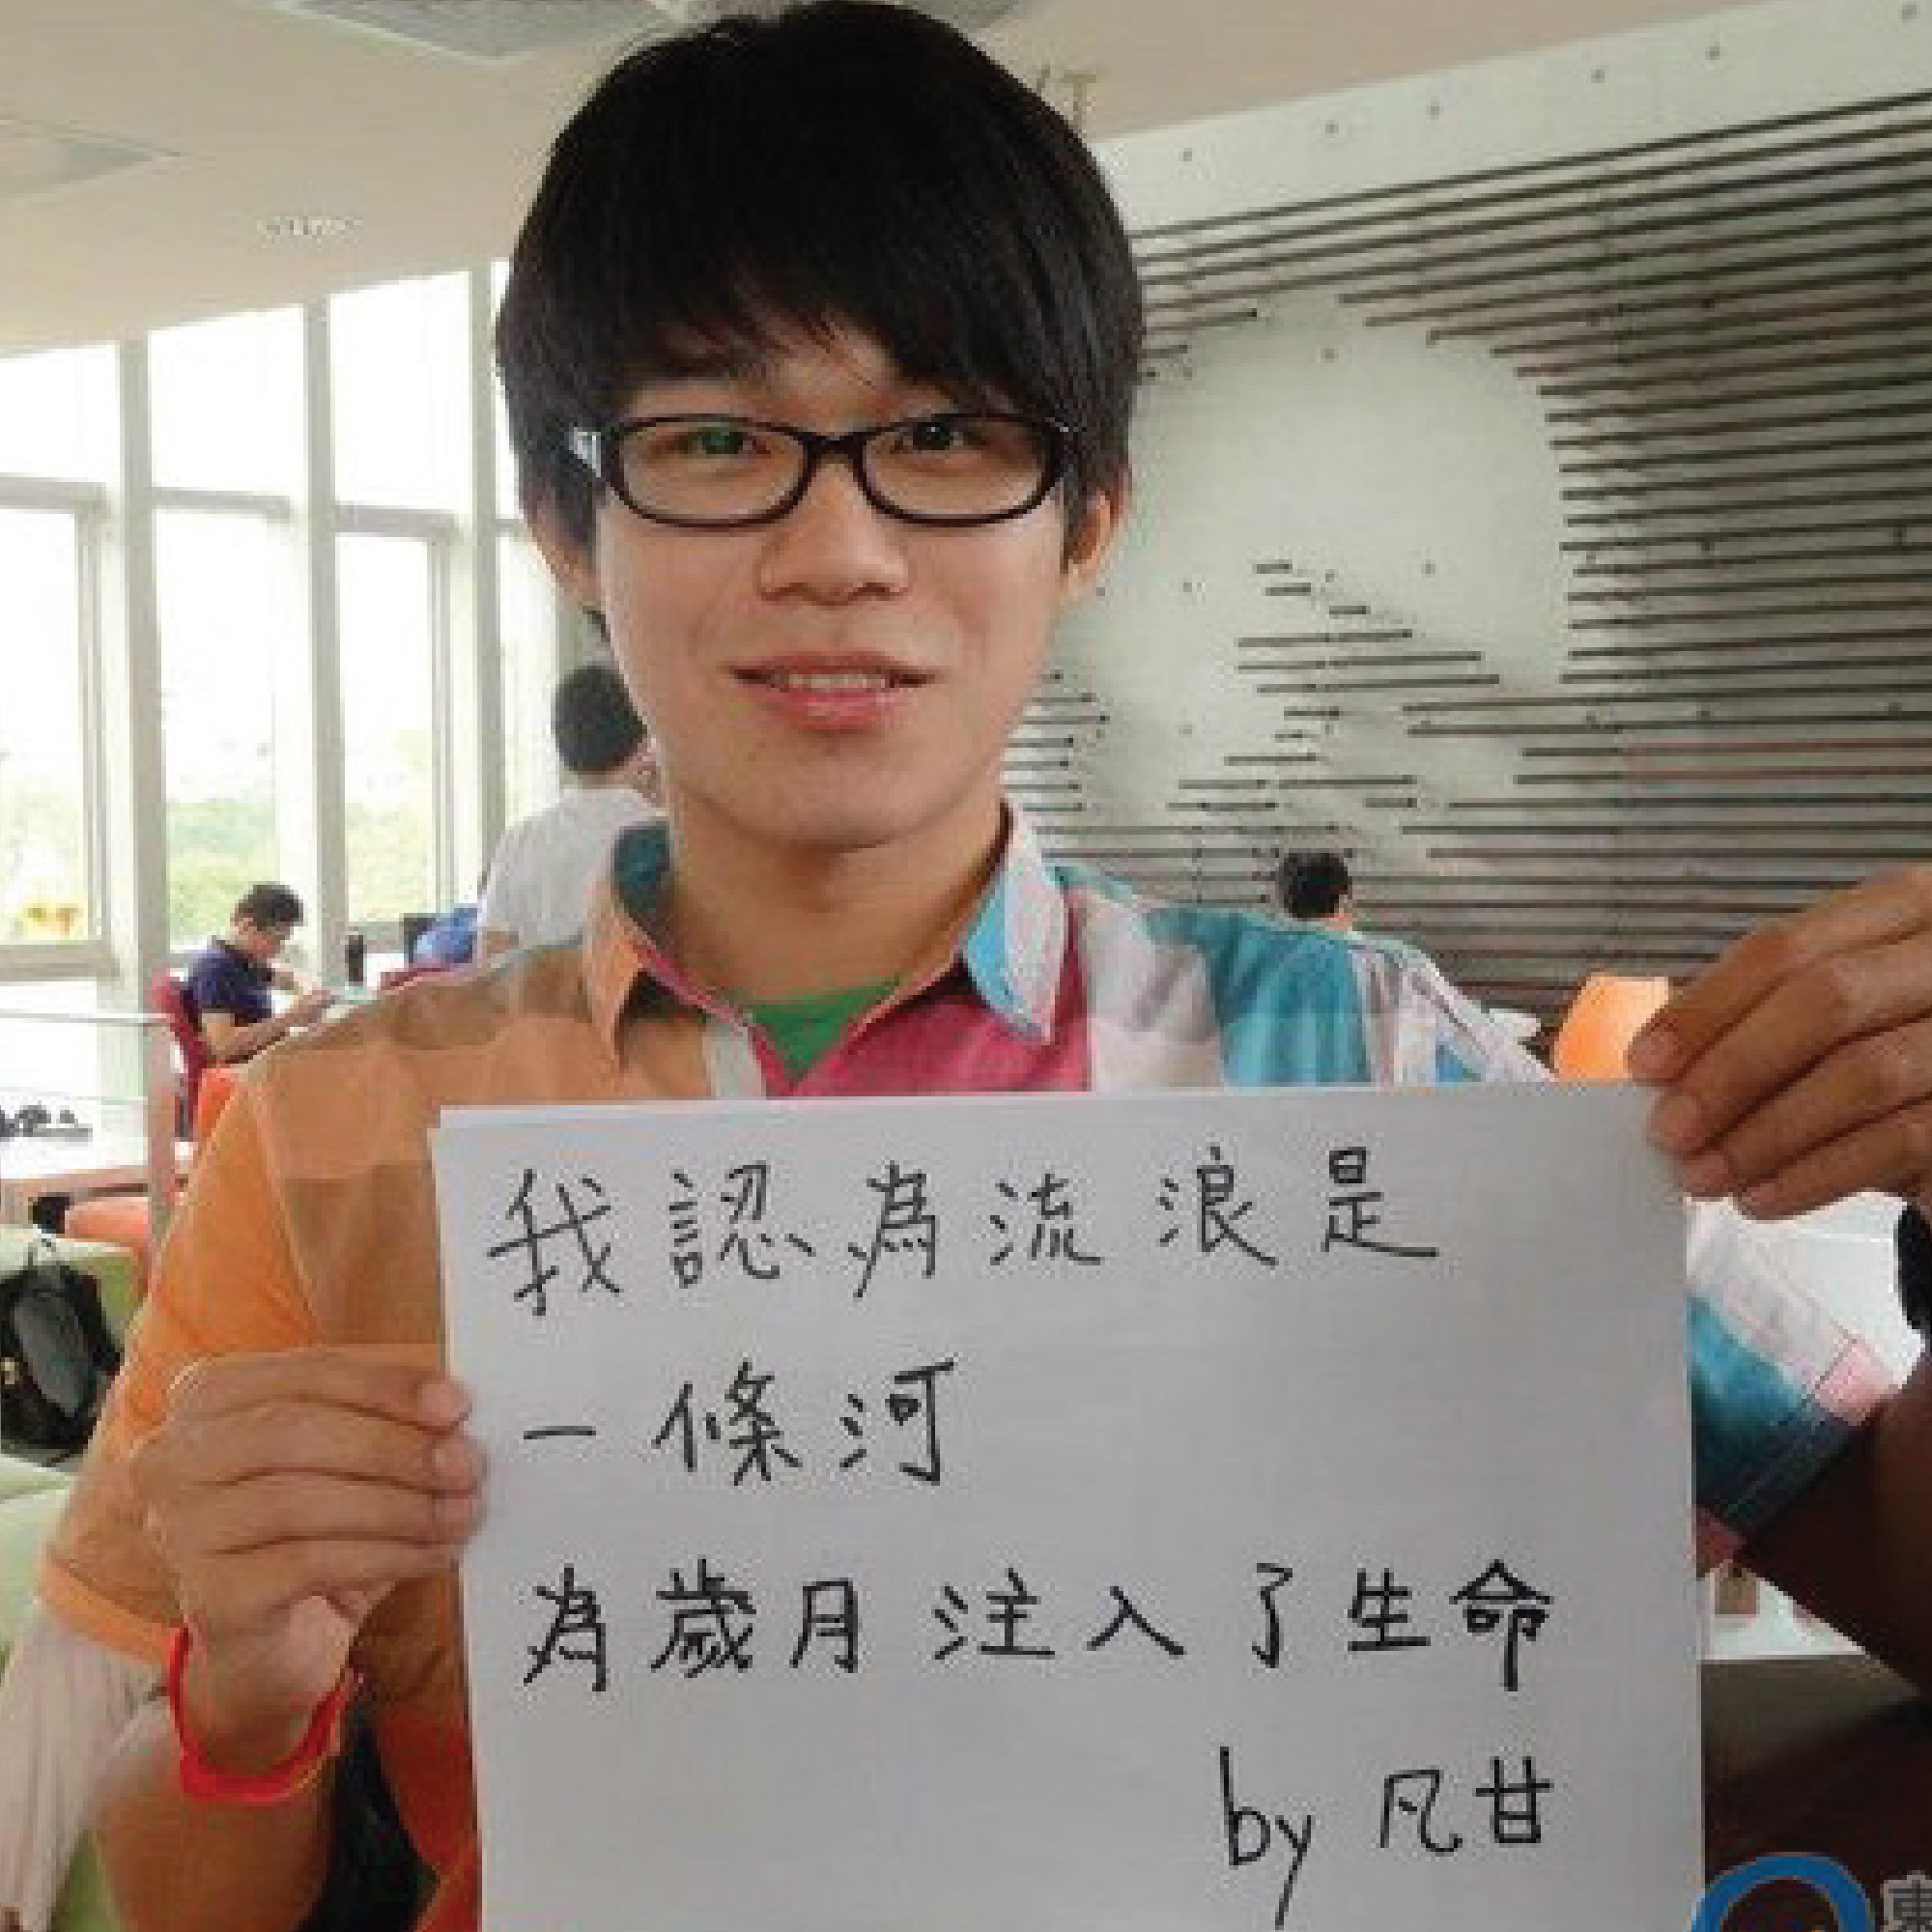 我認為流浪是
一條河
為歲月注入了生命
by 凡甘
東